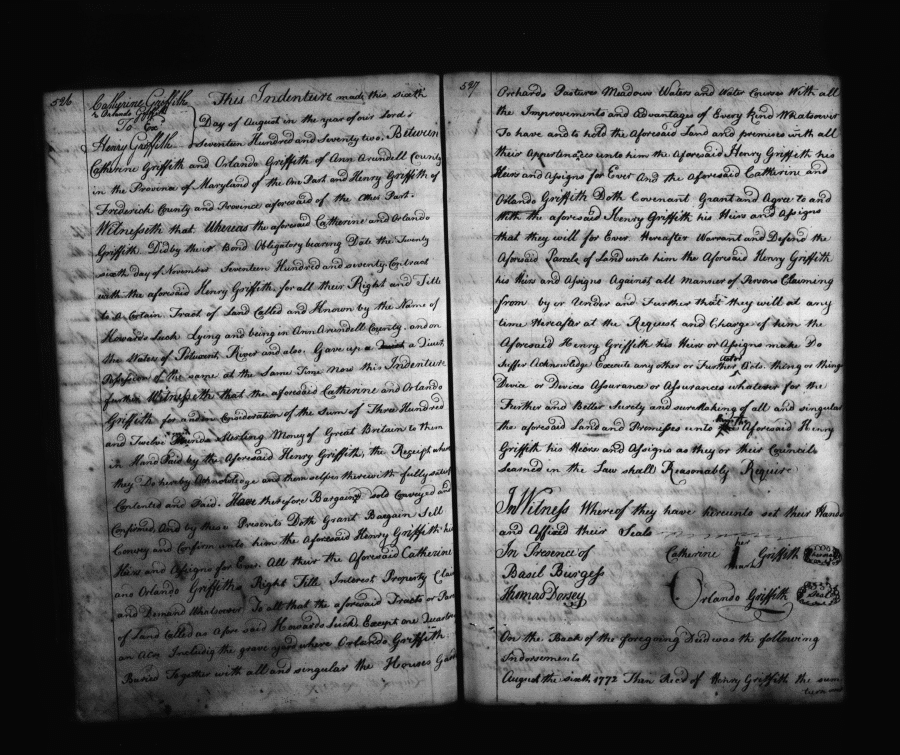 526
Catherine Griffith
& Orlando Griffith
To Exd
Henry Griffith
This Indenture made this sixth
Day of August in the year of our Lord
Seventeen Hundred and Seventy two. Between
Catherine Griffith and Orlando Griffith of Ann Arundell County
in the Province of Maryland of the One Part and Henry Griffith of
Frederick County and Province aforesaid of the other Part.
Witnesseth that Whereas the aforesaid Catherine and Orlando
Griffith. Did by their Bond Obligatory bearing Date the Twenty
sixth day of November Seventeen Hundred and seventy Contract
with the aforesaid Henry Griffith, for all their Right and Titl
to a Certain Tract of Land Called and Known by the Name of
Howards Luck Lying and being in Ann Arundell County. and on
the Water of Putuxent River and also, Gave up a Direct
Possession of the same at the Same Time Now this Indenture
further Witnesseth that the aforesaid Catherine and Orlando
Griffith for and in Consideration of the Sum of Three Hundred
and Twelve Pounds Sterling Money of Great Britain to them
in Hand Paid by the Aforesaid Henry Griffith, the Receipt where
they Do hereby Acknowledge and themselves therewith fully satisf
Contented and Paid. Have therefore Bargained sold Conveyed and
Confirmed. And by these Presents Doth Grant Bargain Sell
Convey and Confirm unto him the Aforesaid Henry Griffith his
Heirs and Assigns for Ever. All their the Aforesaid Catherine
and Orlando Griffiths Right Titl Interest Property Clai
and Demand Whatsoever To all that the aforesaid Tracts or Par
of Land Called as Afore said Howards Luck. Except one Quarter
an Acre Includig the grave yard where Orlando Griffith
Buried Together with all and singular the Houses Gard
527
Orchards Pastures Meadows Waters and Water Courses With all
the Improvements and Advantages of Every Kind Whatsoever
To have and to hold the Aforesaid Land and premises with all
their Appertences unto him the Aforesaid Henry Griffith his
Heirs and Assigns for Ever And the Aforesaid Catherine and
Orlando Griffith Doth Covenant Grant and Agree to and
With the aforesaid Henry Griffith his Heirs and Assigns
that they will for Ever Hereafter Warrant and Defend the
Aforesaid Parcel of Land unto him the Aforesaid Henry Griffith
his Heirs and Assigns Against all Manner of Persons Clawming
from by or Under and Further that they will at any
time Hereafter at the Request and Charge of him the
Aforesaid Henry Griffith his Heirs or Assigns make Do
Suffer Acknowledge Execute any other or Further Acts. thing or things
Device or Devices Assurance or Assurances whatever for the
Further and Better Surety and sure Making of all and singular
the aforesaid Land and Premises unto Aforesaid Henry
Griffith his Heirs and Assigns as they or their Councils
Learned in the Law shall Reasonably Require
In Witness Whereof they have hereunto set their Hands
and Affixed their Seals
In Presence of
Basil Burgess
Thomas Dorsey
her
Catherine Griffith
mark
Orlando Griffith
Seal
On the Back of the foregoing Deed was the following
Indorsements
August the sixth 1772 Then Recd of Henry Griffith the sum
turn over